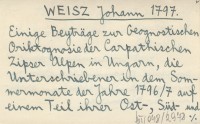 WEISZ Johann 1797.
Einige Beyträge zur Geognostischen
Oriktognosie der Carpathischen
Zipser Alpen in Ungarn, die
Unterschriebener in dem Som-
mermonate der Jahre 1796/7 auf
einem Teil ihrer Ost-, Süd- und